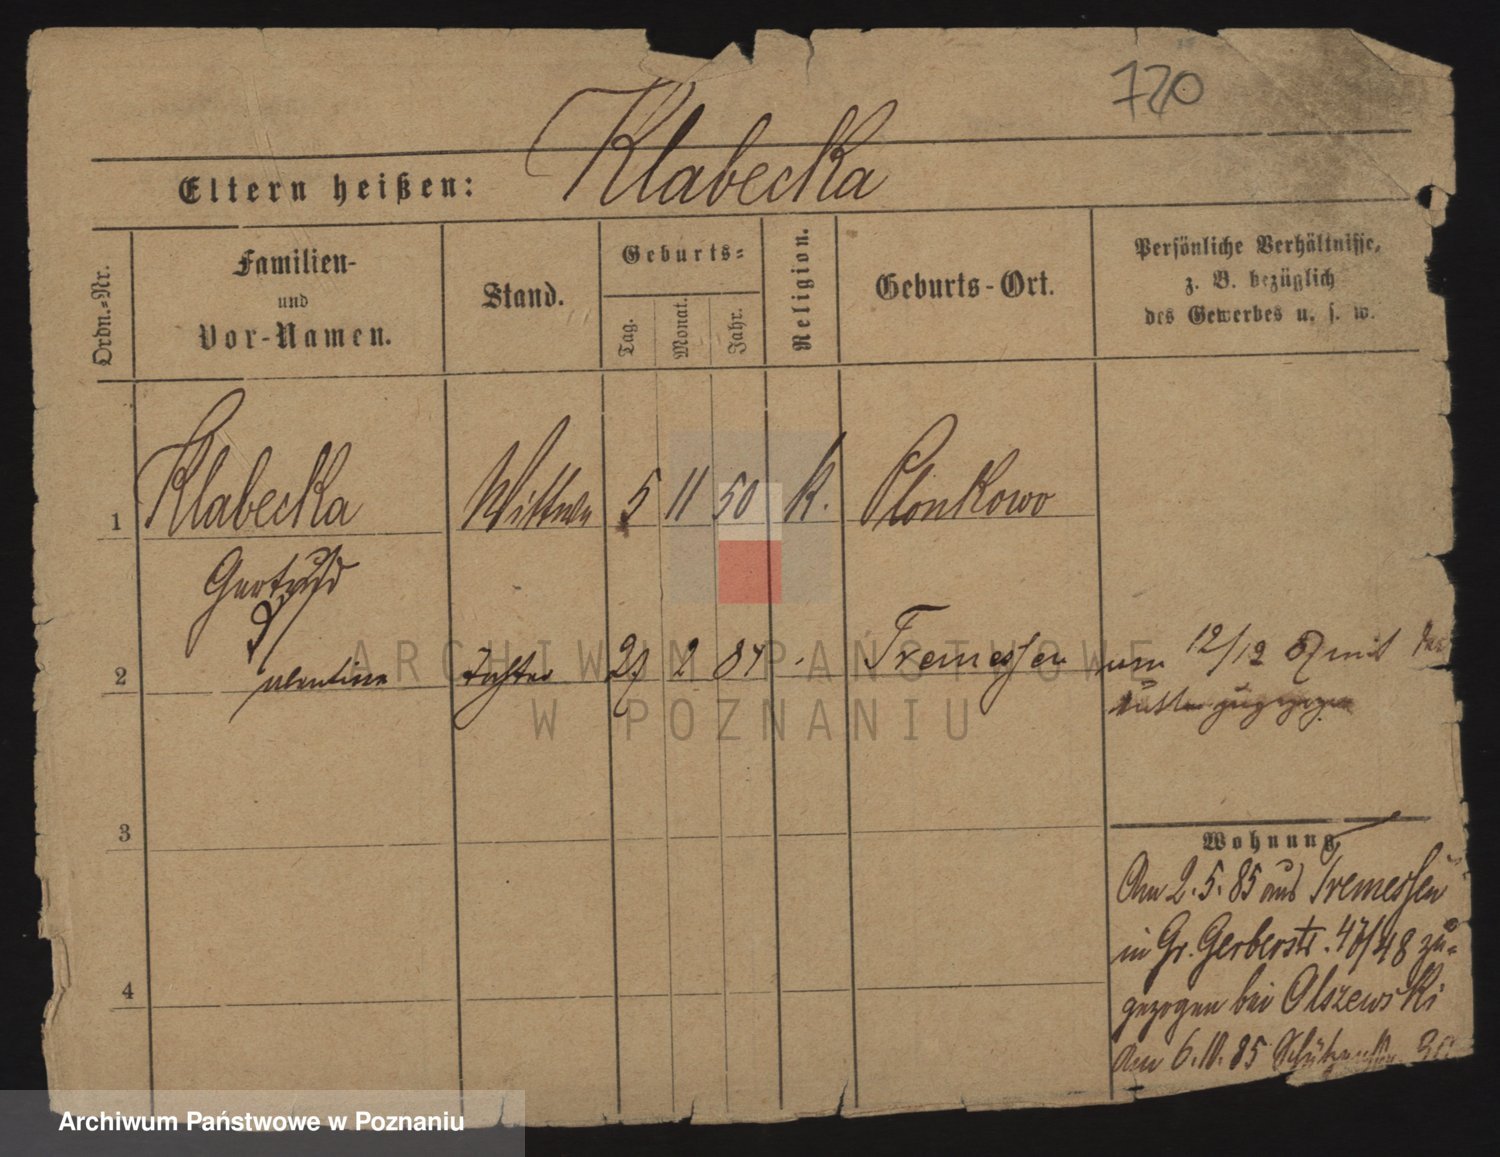 720
Klabecka
Eltern heißen:
Ordn.-Nr.
Familien-
und
Vor-Namen.
Stand.
Geburts-
Tag.
Monat.
Jahr.
Religion.
Geburts-Ort.
Persönliche Verhältnisse,
z. B. bezüglich
des Gewerbes u. s. w.
1 Klabecka Wittwe 5 11 50 K. Plonkowo
Gertrud
2 Tochter 27 2 87 Tremessen am 12/12 87 mit der
Mutter zugezogen
3
Wohnung
Am 2.5.85 aus Tremessen
in Gr. Gerberstr. 47/48 zu-
gezogen bei Olszewski
4
den 6.10.85
ARCHIWUM PAŃSTWOWE
W POZNANIU
Archiwum Państwowe w Poznaniu